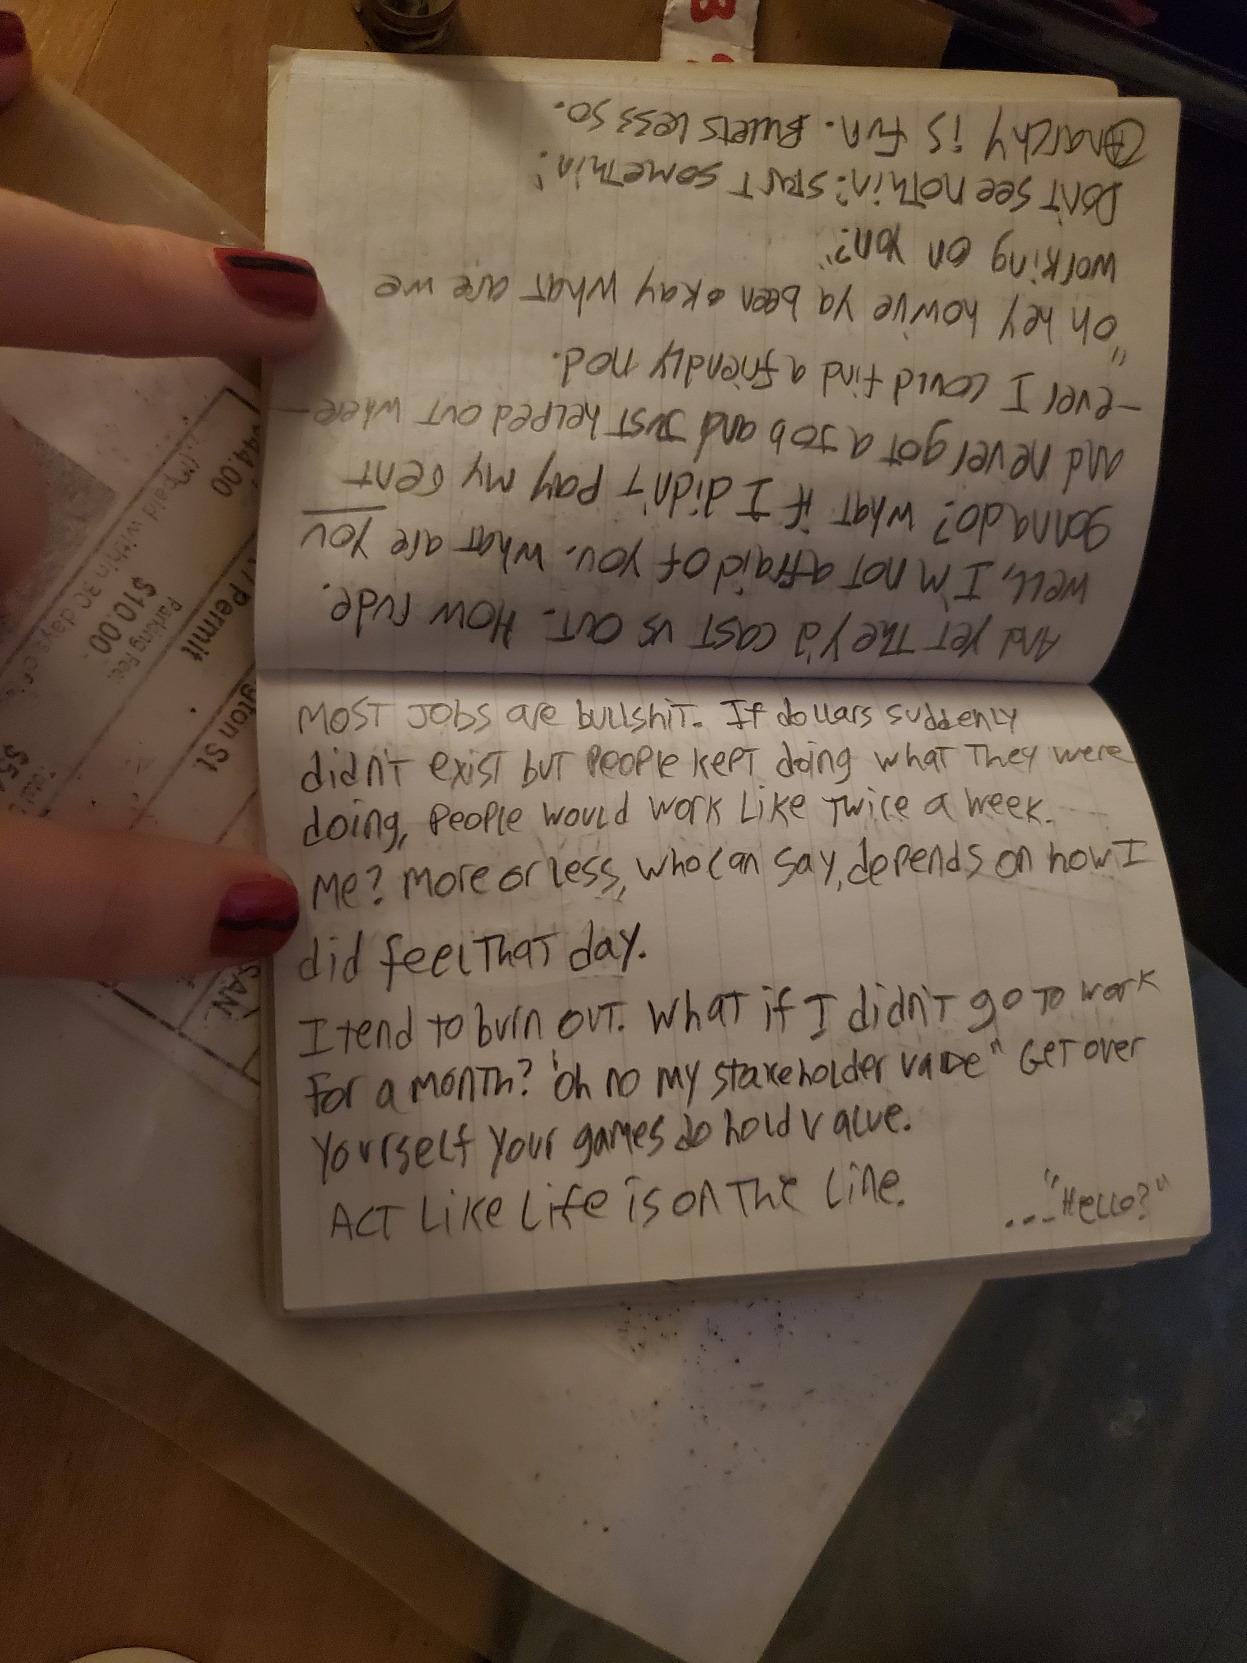 And yet they'd cast us out. How rude.
Well, I'm not afraid of you. What are you
gonna do? What if I didn't pay my rent
and never got a job and just helped out where–
–ever I could find a friendly nod.
"oh hey how've ya been okay what are we
working on yon?"
Don't see nothin? Start somethin!
Anarchy is fun. Bullets less so.
Most jobs are bullshit. If dollars suddenly
didn't exist but people kept doing what they were
doing, people would work like twice a week.
Me? More or less, who can say, depends on how I
did feel that day.
I tend to burn out. What if I didn't go to work
for a month? "oh no my stakeholder value" Get over
yourself your games do hold value.
Act like life is on the line.
..."Hello?"
$44.00
if paid within 30 days
Parking Fee:
$10.00
Permit
gton St
SAN
B